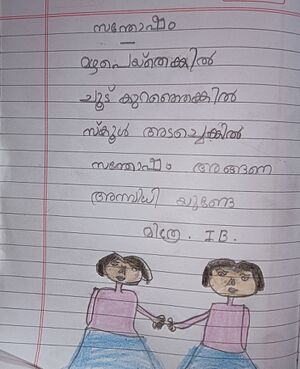 സന്തോഷം
മഴപെയ്തെങ്കിൽ
ചൂട് കുറഞ്ഞെങ്കിൽ
സ്കൂൾ അടച്ചെങ്കിൽ
സന്തോഷം അങ്ങണ
യുണ്ടേ
മിത്ര. I B.